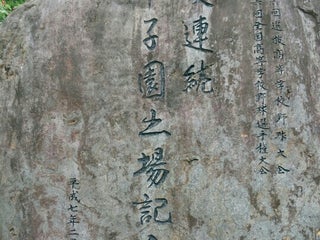 回選抜高等学校野球大会
回全国高等学校野球選手権大会
連続
子園出場記
平成七年二